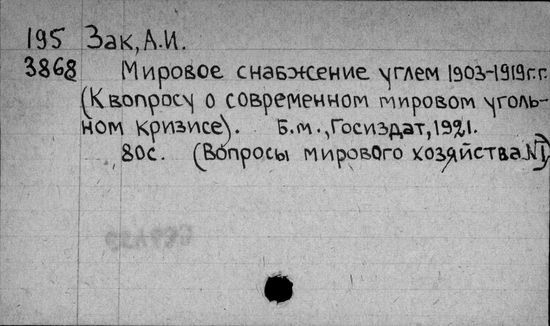 195 Зак, А.И.
3868 Мировое снабжение углем 1903-1919г.г.
(К вопросу о современном мировом уголь-
ном кризисе). Б.м., Госиздат, 1921.
80с. (Вопросы мирового хозяйства №1)